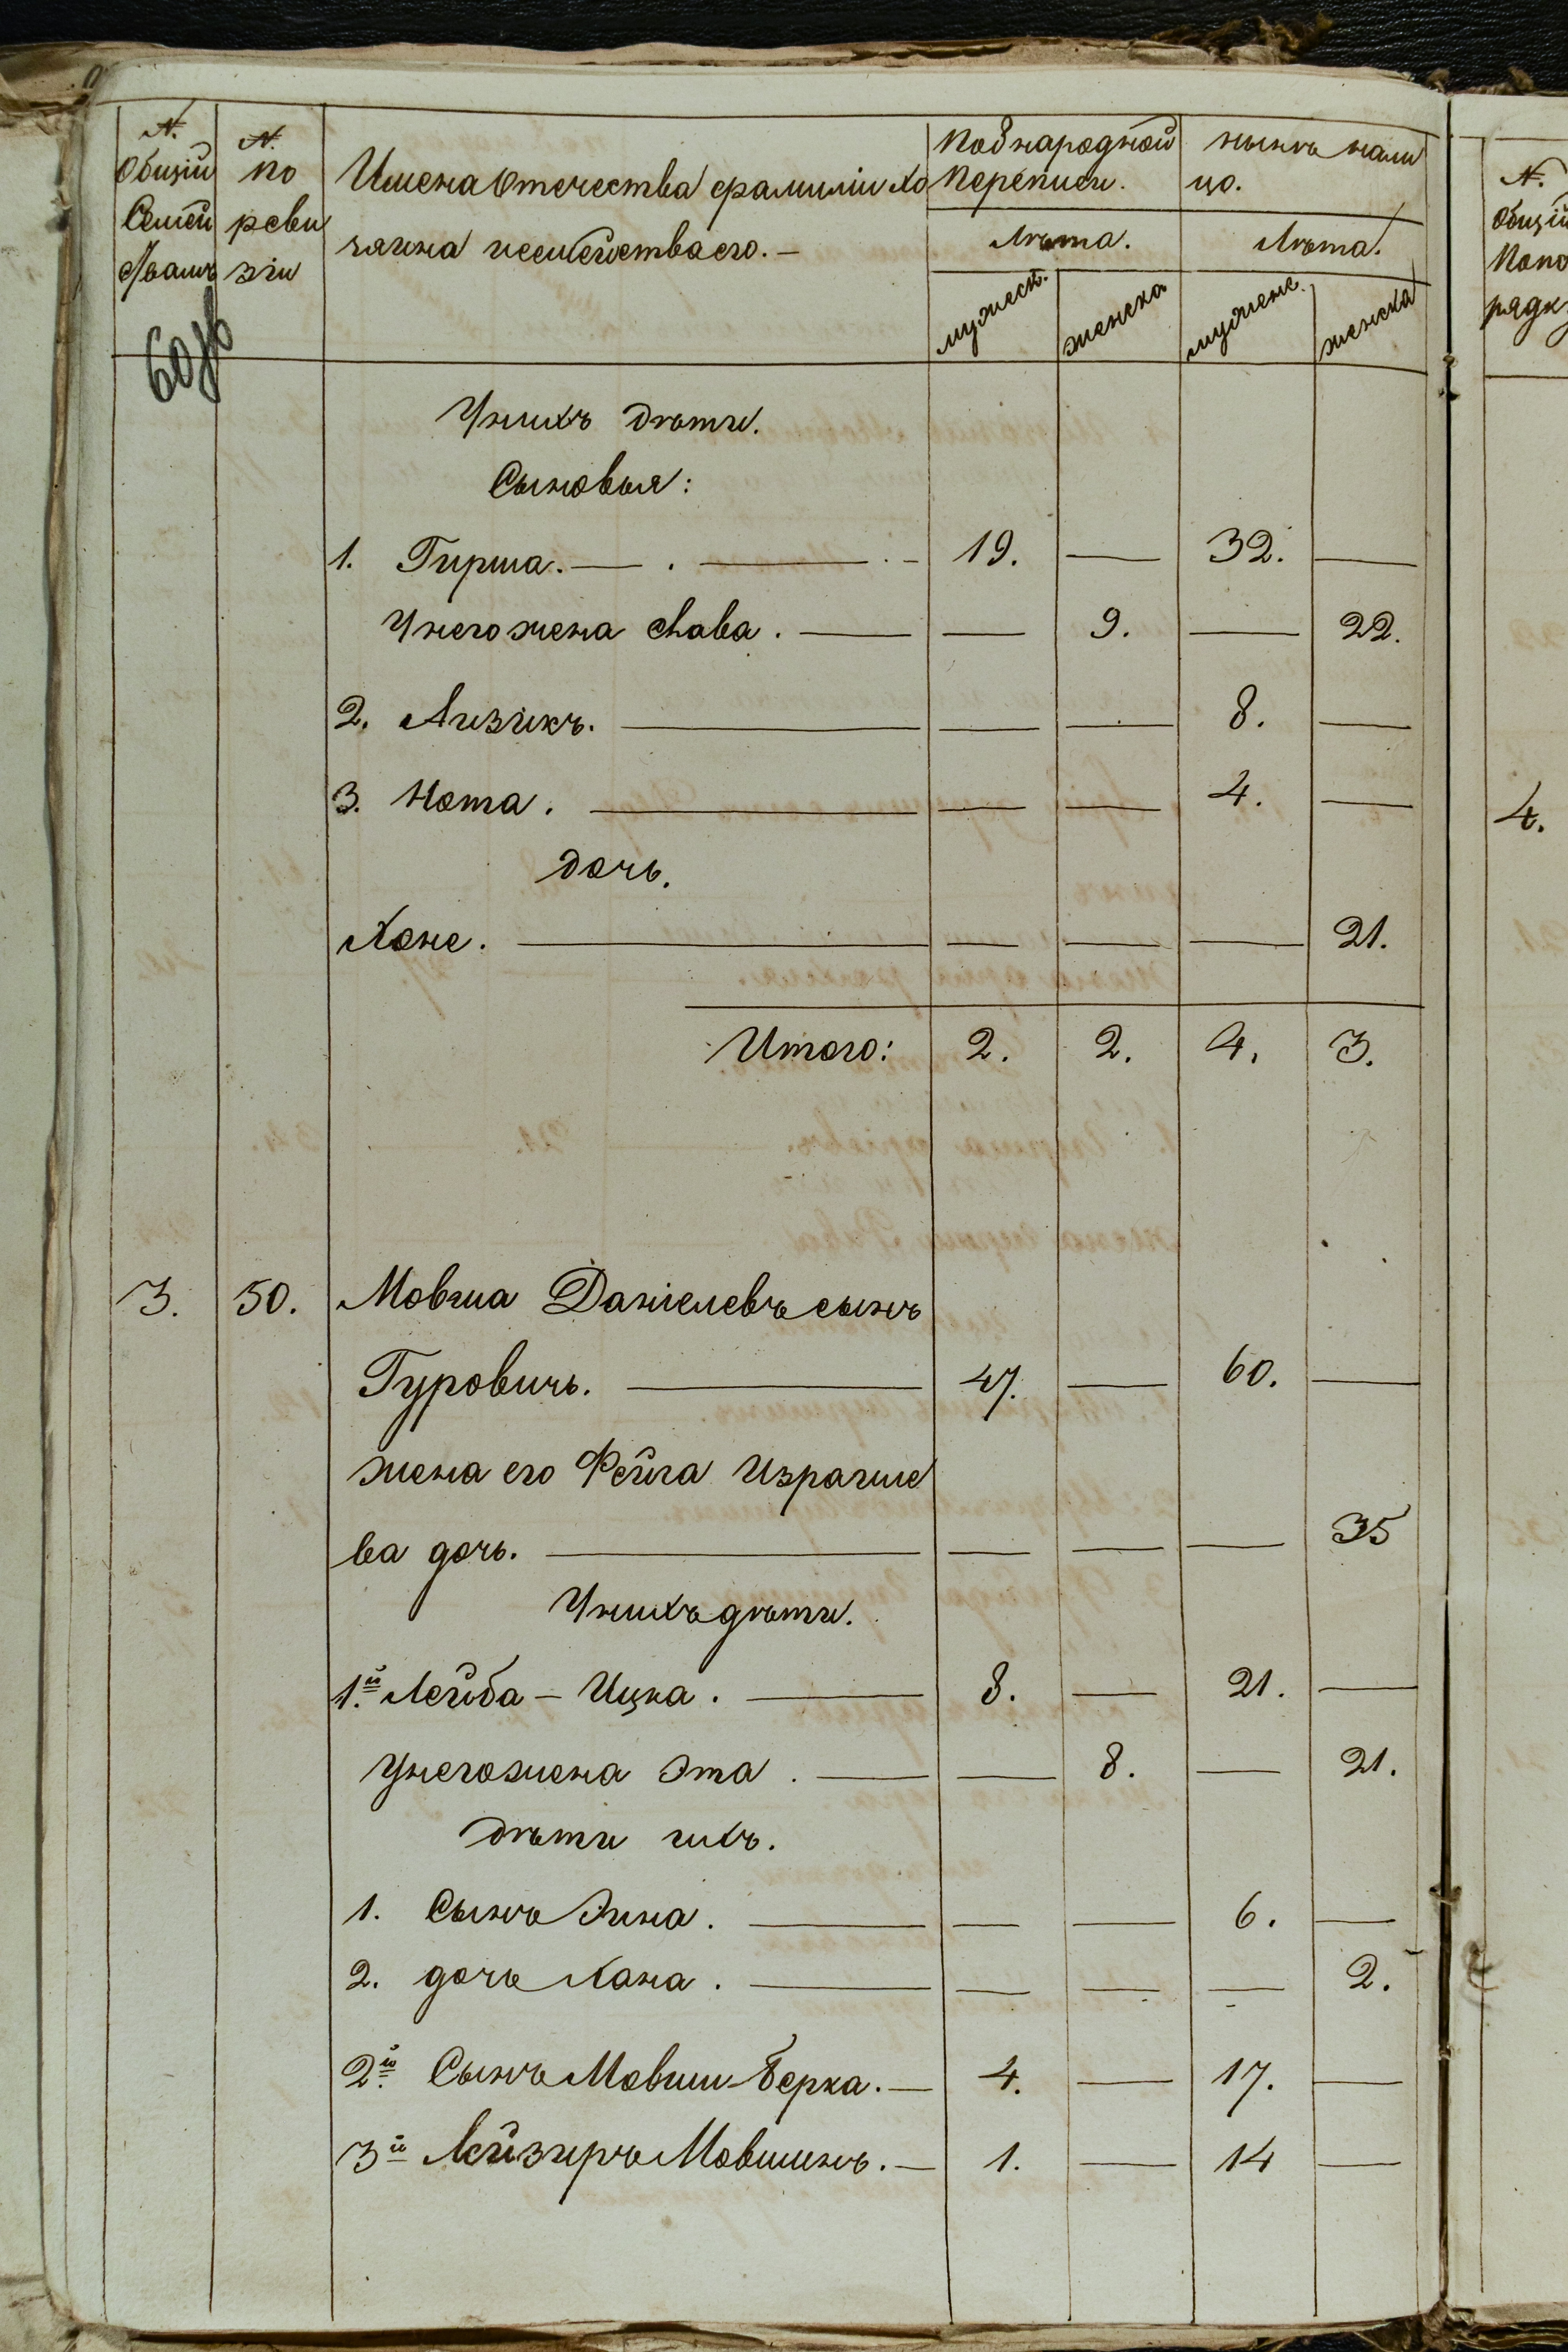 N.
Общій
Семей
ствамъ
N.
по
реви
зіи
Имена отечества фамиліи хо
зяина и семейства его. —
по 8 народной
Переписи.
Лѣта.
мужеск.
женска
нынѣ нали
цо.
Лѣта.
мужеск.
женска
60 об
У нихъ дѣти.
Сыновья:
1. Гирша. — . — . - 19. — 32. —
У него жена Хава. — — 9. — 22.
2. Айзикъ. — — — 8. —
3. Нота. — — — 4. —
дочь.
Хане. — — — — 21.
Итого: 2. 2. 4. 3.
3. 50. Мовша Даніелевъ сынъ
Гуровичь. — 47. — 60. —
жена его Фейга Израиле
ва дочь. — — — — 35
У нихъ дѣти.
1.й Лейба - Ицка. — 8. — 21. —
У него жена Эта. — — 8. — 21.
Дѣти ихъ.
1. Сынъ Зина. — — — 6. —
2. дочь Хана. — — — — 2.
2.й Сынъ Мовши-Берка. — 4. — 17. —
3й Лейзиръ Мовшинъ. — 1. — 14 —
N.
Общій
Попо
рядк
4.